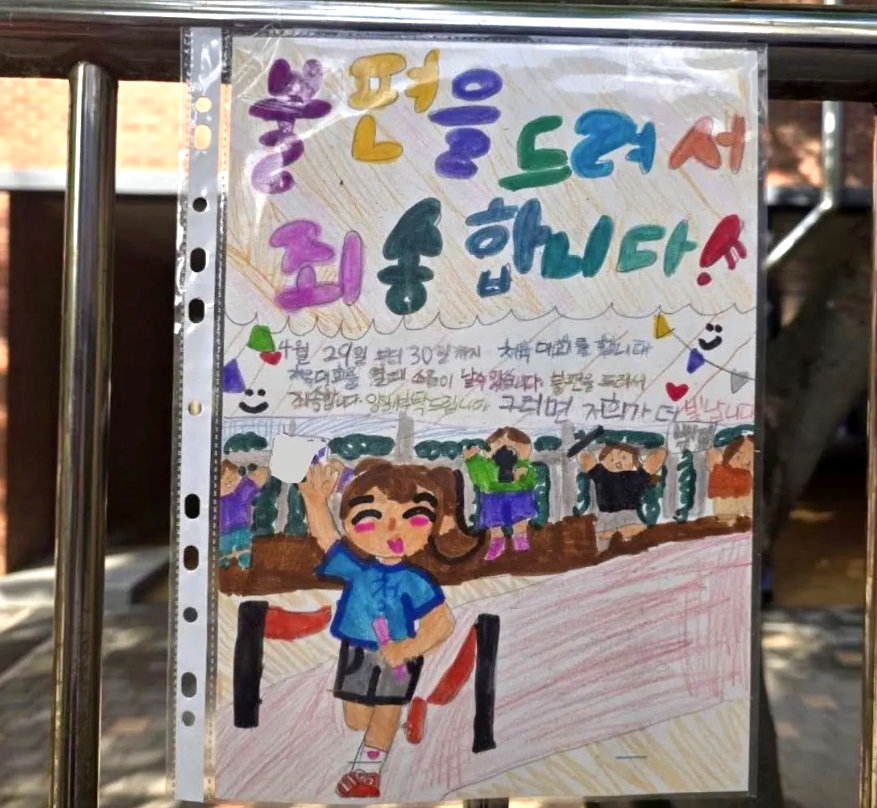 불편을드려서
죄송합니다!
4월 29일 부터 30일까지 체육대회를 합니다
체육대회를 할때 소음이 날수있습니다. 불편을 드려서
죄송합니다. 양해부탁드립니다 그러면 저희가 더 빛납니다